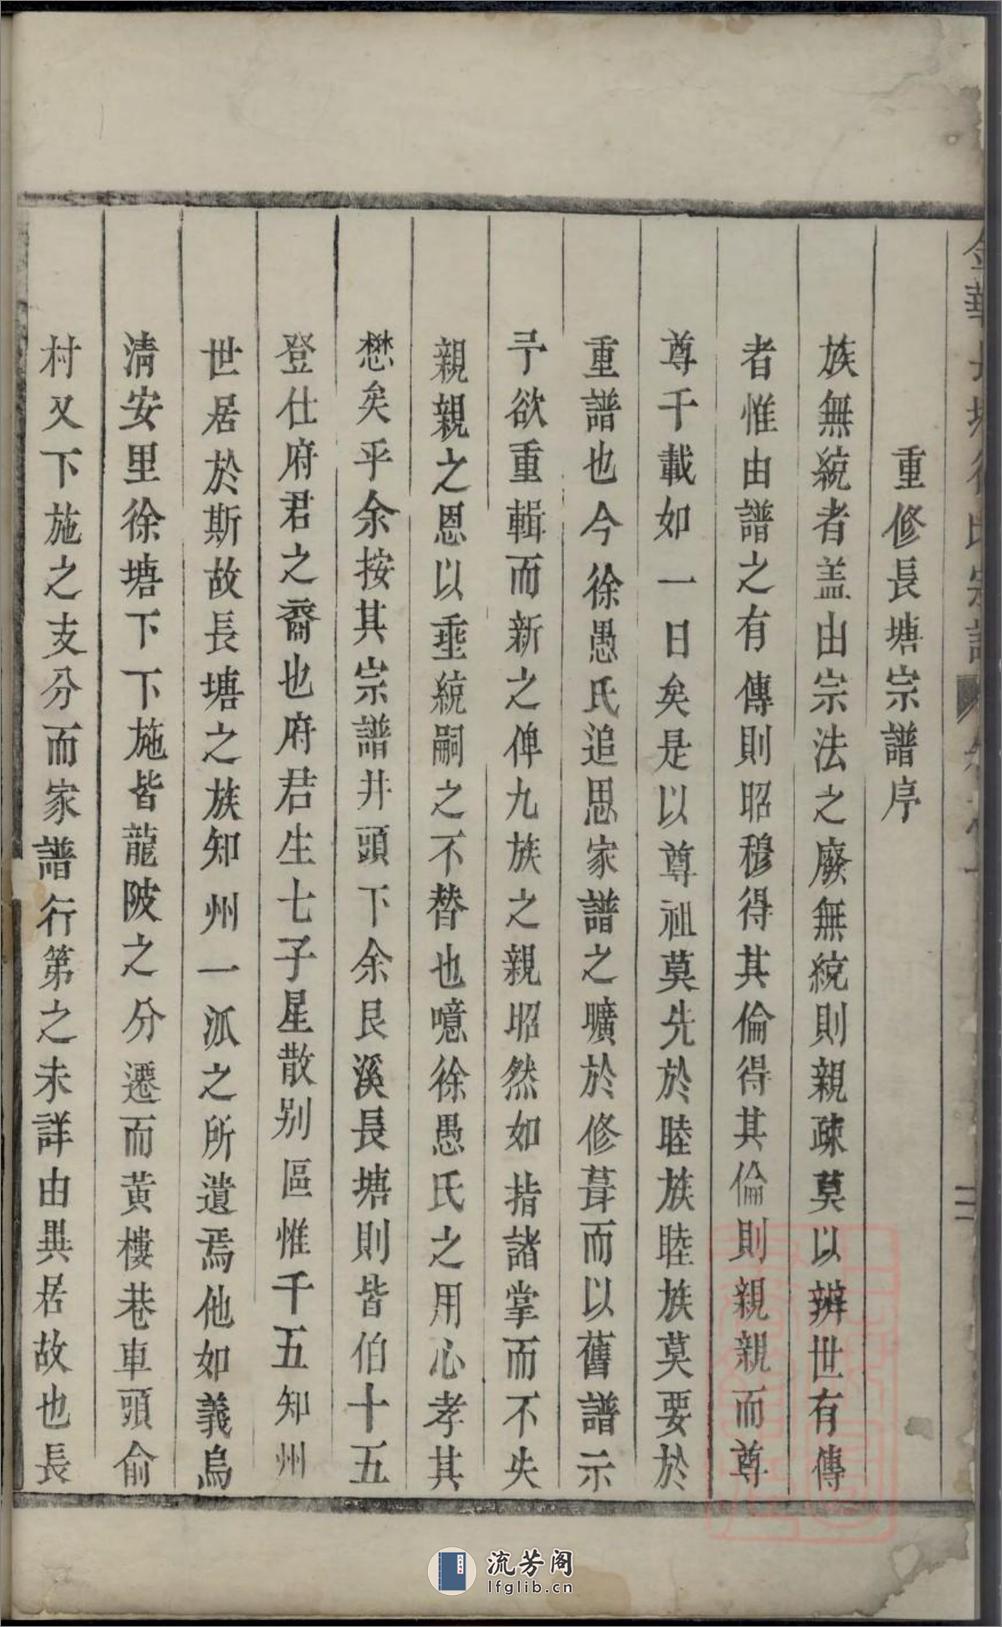 重修長塘宗譜序
族無統者盖由宗法之廢無統則親疎莫以辨世有傳
者惟由譜之有傳則昭穆得其倫得其倫則親親而尊
尊千載如一日矣是以尊祖莫先於睦族睦族莫要於
重譜也今徐愚氏追思家譜之曠於修葺而以舊譜示
予欲重輯而新之俾九族之親昭然如指諸掌而不失
親親之恩以垂統嗣之不替也噫徐愚氏之用心孝其
懋矣乎余按其宗譜井頭下余艮溪長塘則皆伯十五
登仕府君之裔也府君生七子星散别區惟千五知州
世居於斯故長塘之族知州一派之所遺焉他如義烏
清安里徐塘下下施皆龍陂之分遷而黄樓巷車頭俞
村又下施之支分而家譜行第之未詳由異居故也長
流芳阁
lfglib.cn